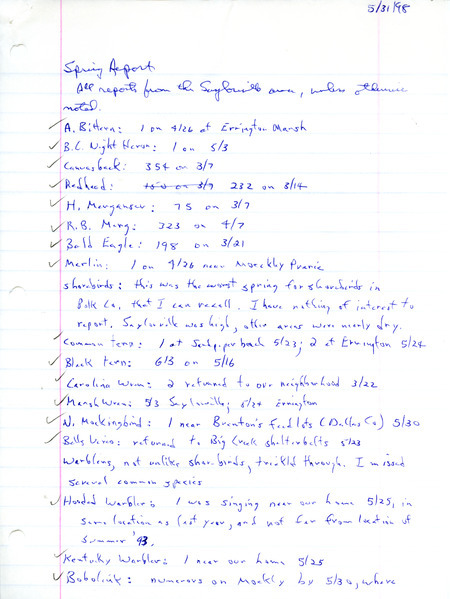 5/31/98
Spring Report
All reports from the Saylorville area, unless otherwise
noted.
A. Bittern: 1 on 4/26 at Errington Marsh
B.C. Night Heron: 1 on 5/3
Canvasback: 354 on 3/7
Redhead: 150 on 3/7 232 on 3/14
H. Merganser: 75 on 3/7
R.B. Merg: 323 on 4/7
Bald Eagle: 198 on 3/21
Merlin: 1 on 4/26 near Moeckly Prairie
shorebirds: this was the worst spring for shorebirds in
Polk Co. that I can recall. I have nothing of interest to
report. Saylorville was high, other areas were nearly dry.
Common tern: 1 at beach 5/23; 2 at Errington 5/24
Black tern: 63 on 5/16
Carolina Wren: 2 returned to our neighborhood 3/22
Marsh Wren: 5/3 Saylorville; 5/24 Errington
N. Mockingbird: 1 near Brenton's feedlots (Dallas Co) 5/30
Bells Vireo: returned to Big Creek shelterbelts 5/23
Warblers, not unlike shorebirds, trickled through. I missed
several common species
Hooded Warbler: 1 was singing near our home 5/25, in
same location as last year, and not far from location of
Summer '93.
Kentucky Warbler: 1 near our home 5/25
Bobolink: numerous on Moeckly by 5/30, where